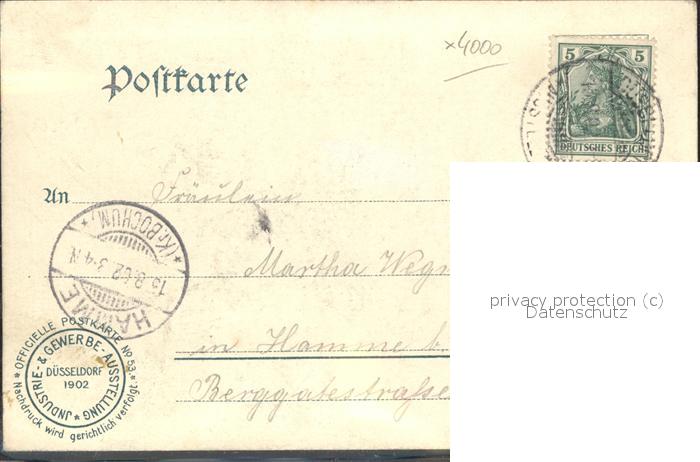 ×4000
Postkarte
5 5
DEUTSCHES REICH
An Fräulein
Martha Weg
in Hamme b.
Berggatestrasse
HAMME
* (Kr. BOCHUM) *
8.02. 3-4 N
* OFFICIELLE POSTKARTE No 53. *
Nachdruck wird gerichtlich verfolgt.
JNDUSTRIE- & GEWERBE-AUSSTELLUNG *
DÜSSELDORF
1902
privacy protection (c)
Datenschutz